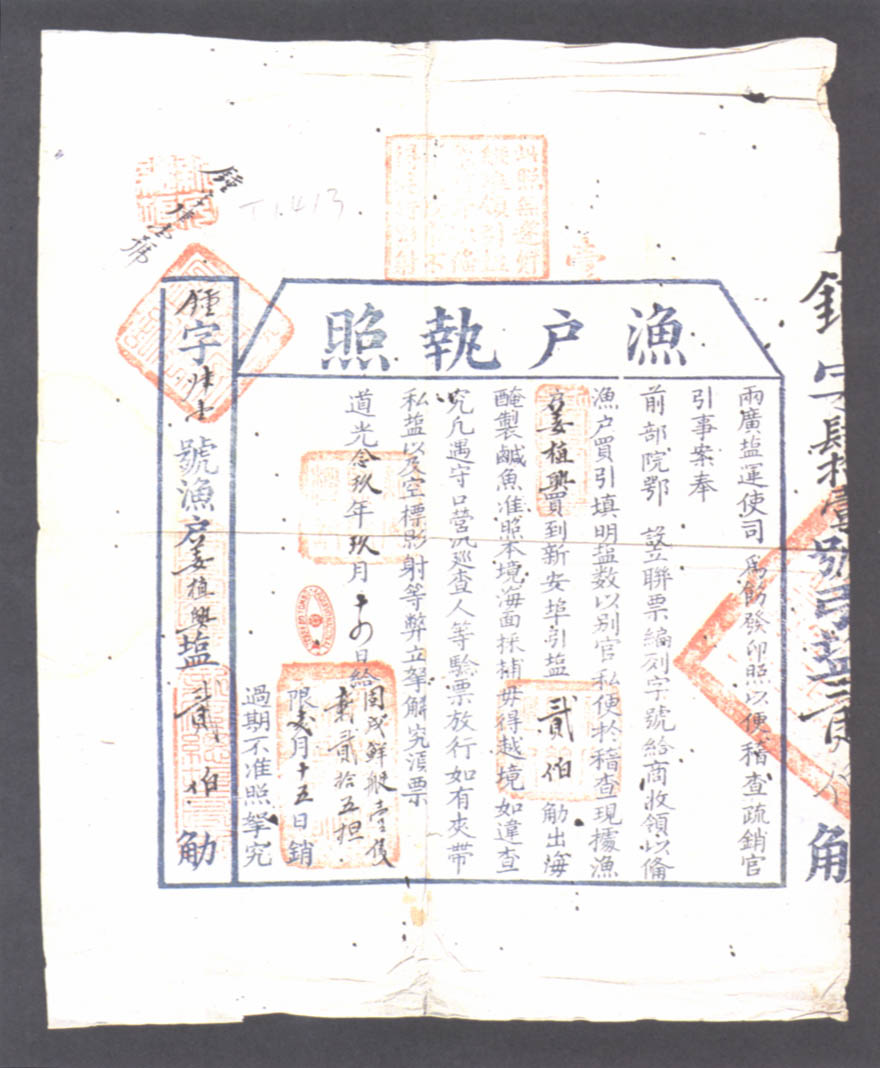 漁户執照
兩廣塩運使司為飭發印照以便稽查疏銷官
引事案奉
前部院鄂 設立聯票編列字號給商收領以俻
漁户買引填明塩数以别官私便於稽查現據漁
户姜植興買到新安埠引塩貳伯觔出海
醃製鹹魚准照本境海面採捕毋得越境如違查
究凡遇守口營汛巡查人等驗票放行如有夾帶
私塩以及空標影射等弊立拏解究湏票
道光念玖年玖月十四日給
固戍鮮艇壹隻
貳拾五担
限亥月十五日銷
過期不准照拏究
鍾字卌一號漁户姜植興塩貳伯觔
字肆拾壹號引塩貳伯觔
號
T1.413
壹